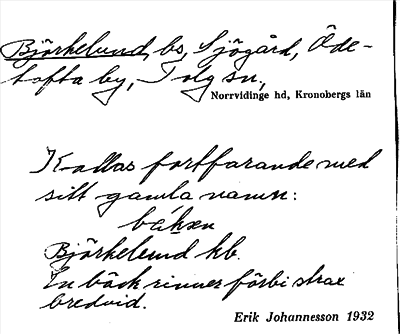 Björkelund, bs, Sjögård, Öde-
tofta by, Tolg sn,
Norrvidinge hd, Kronobergs län
Kallas fortfarande med
sitt gamla namn:
Björkelund kb.
En bäck rinner förbi strax
bredvid.
Erik Johannesson 1932